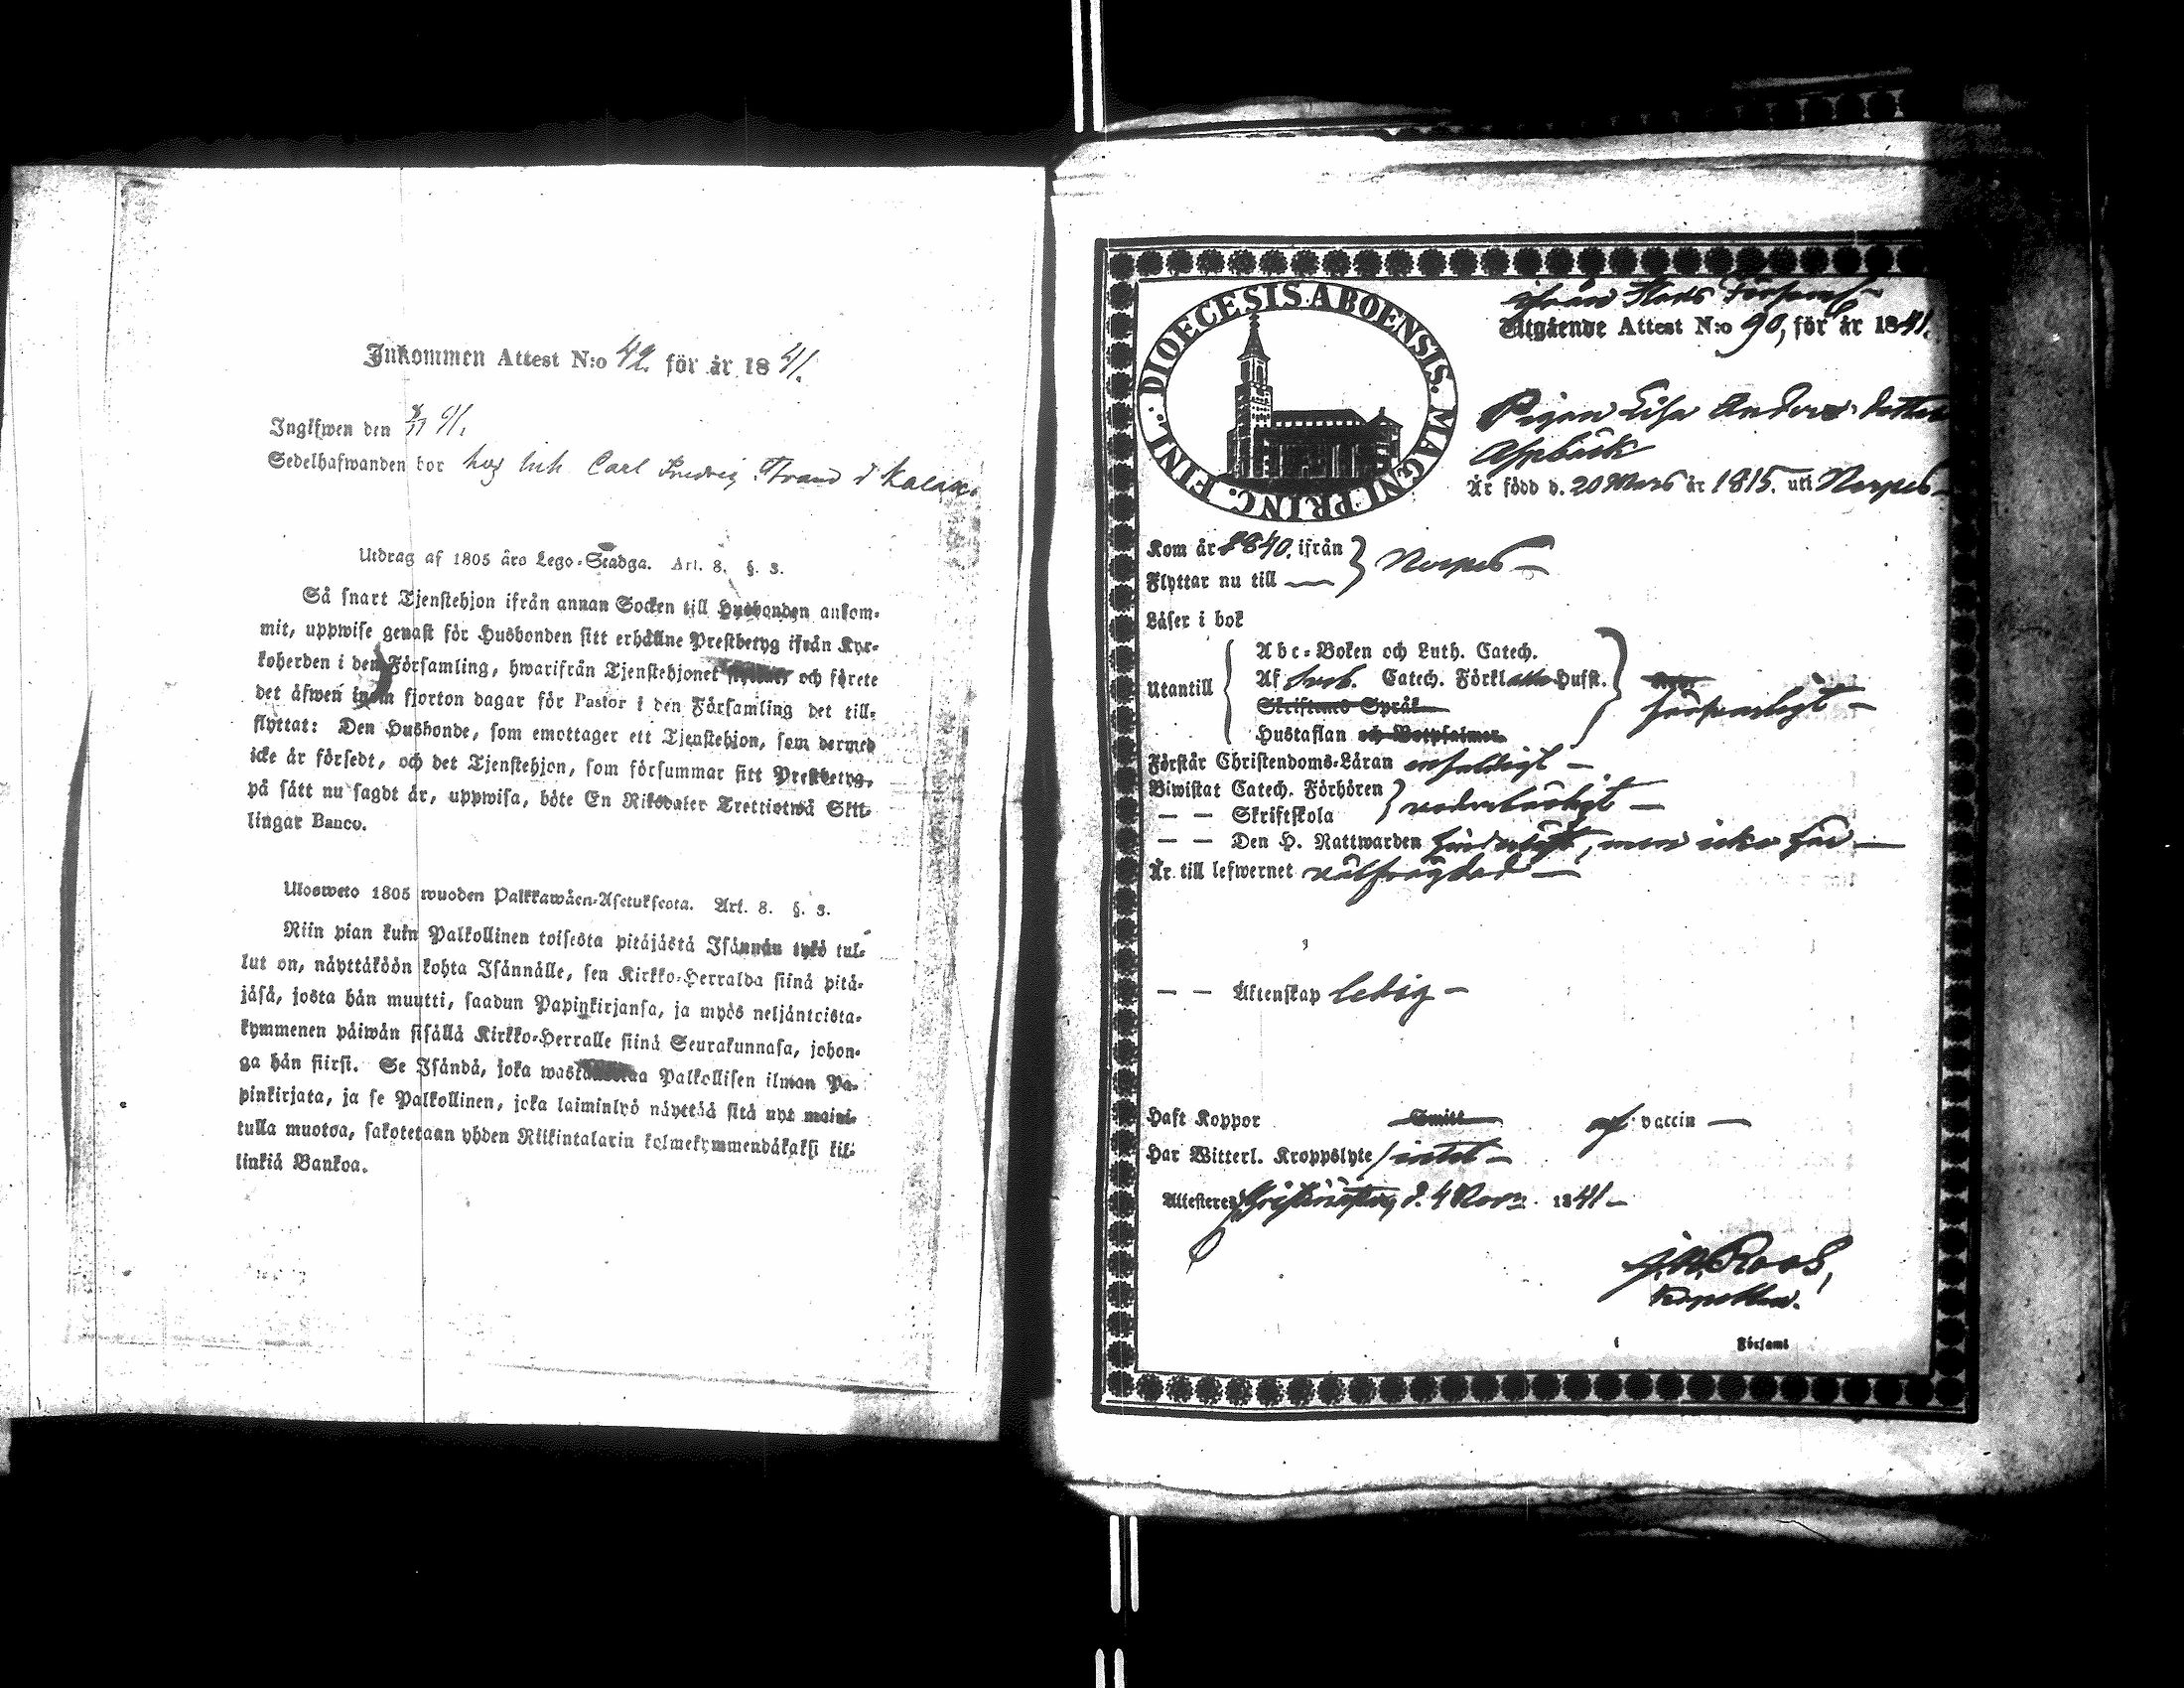 Inkommen Attest N:o 42. för år 1841.
Ingifwen den
Sedelhafwanden bor hos Inh Carl Fredric Strand i Kalax.
Utdrag af 1805 års Lego-Stadga. Art. 8. §. 3.
Så snart Tjenstehjon ifrån annan Socken till Husbonden ankom-
mit, uppwise genast för Husbonden sitt erhållne Prestbetyg ifrån Kyr-
koherden i den Församling, hwarifrån Tjenstehjonet och förete
det äfwen inom fjorton dagar för Pastor i den Församling det till-
flyttat: Den Husbonde, som emottager ett Tjenstehjon, som dermed
icke är försedt, och det Tjenstehjon, som försummar sitt Prestbetyg,
på sätt nu sagdt är, uppwisa, böte En Riksdaler Trettiotwå Skil-
lingar Banco.
Ulosweto 1805 wuoden Palkkawäen-Asetuksesta. Art. 8. §. 3.
Niin pian kuin Palkollinen toisesta pitäjästä Isännän tykö tul-
lut on, näyttäköön kohta Isännälle, sen Kirkko-Herralda siinä pitä-
jäsä, josta hän muutti, saadun Papinkirjansa, ja myös neljäntoista-
kymmenen päiwän sisällä Kirkko-Herralle siinä Seurakunnasa, johon-
ga hän siirsi. Se Isändä, joka wastaanottaa Palkollisen ilman Pa-
pinkirjata, ja se Palkollinen, joka laiminlyö näyttää sitä nyt maini-
tulla muotoa, sakotetaan yhden Riikintalarin kolmekymmendäkaksi kil-
linkiä Bankoa.
DIOECESIS ABOENSIS. MAGNI PRINC. FINL.
ifrån Stads Församl
Utgående Attest N:o 90, för år 1841.
Pigan Lisa Anders dotter
Appbäck
Är född d. 20 Mars år 1815. uti Nerpes
Kom år 1840. ifrån
Flyttar nu till } Nerpes
Läser i bok
Abc-Boken och Luth. Catech.
Utantill Af Sveb. Catech. Förkl Husst.
Skriftens Språk
försvarligt
Hustaflan och Botpsalmer
Förstår Christendoms-Läran enfaldigt
Biwistat Catech. Förhören
— — Skriftskola } vederbörligt
— — Den H. Nattwarden hinderlöst, men icke här
Är till lefwernet välfrägdad
— — Äktenskap ledig
Haft Koppor Smitt af vaccin
Har Witterl. Kroppslyte intet
Attesteres Christinestad d. 4 Nov. 1841
J. N. Roos,
Kapellan.
i Församl